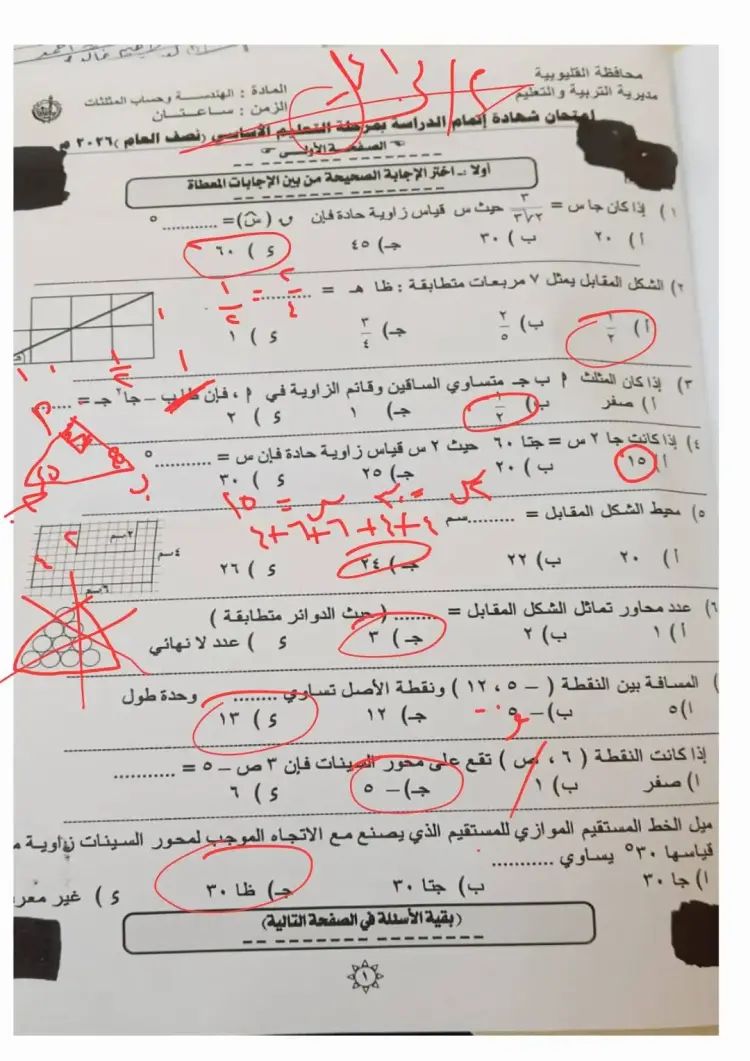 محافظة القليوبية
مديرية التربية والتعليم
المادة : الهندسة وحساب المثلثات
الزمن : ساعتان
امتحان شهادة إتمام الدراسة بمرحلة التعليم الأساسى (نصف العام) ٢٠٢٦ م
الصفحة الأولى
أولا :- اختر الإجابة الصحيحة من بين الإجابات المعطاة
١) إذا كان جا س = ٣/٢√٣ حيث س قياس زاوية حادة فإن ق (س) = ........... °
أ) ٢٠ ب) ٣٠ جـ) ٤٥ ء) ٦٠
٢) الشكل المقابل يمثل ٧ مربعات متطابقة : ظا هـ = ........... = ٢/٤ = ١/٢
أ) ١/٢ ب) ٢/٥ جـ) ٣/٤ ء) ١
١
١
١/٢
٣) إذا كان المثلث أ ب جـ متساوي الساقين وقائم الزاوية في أ ، فإن ظا ب – جا٢ جـ = ........
أ) صفر ب) ١/٢ جـ) ١ ء) ٢
٤) إذا كانت جا ٢ س = جتا ٦٠ حيث ٢ س قياس زاوية حادة فإن س = ........... °
أ) ١٥ ب) ٢٠ جـ) ٢٥ ء) ٣٠
س = ١٥
٥) محيط الشكل المقابل = ........ سم
٤+٦+٦+٤+٤
أ) ٢٠ ب) ٢٢ جـ) ٢٤ ء) ٢٦
٢سم
٤سم
٦سم
٦) عدد محاور تماثل الشكل المقابل = ........ ( حيث الدوائر متطابقة )
أ) ١ ب) ٢ جـ) ٣ ء) عدد لا نهائي
) المسافة بين النقطة ( – ٥ ، ١٢ ) ونقطة الأصل تساوي ........ وحدة طول
ا) ٥ ب) – ٥ جـ) ١٢ ء) ١٣
إذا كانت النقطة ( ٦ ، ص ) تقع على محور السينات فإن ٣ ص – ٥ = ...........
ا) صفر ب) ١ جـ) – ٥ ء) ٦
ميل الخط المستقيم الموازي للمستقيم الذي يصنع مع الاتجاه الموجب لمحور السينات زاوية
قياسها ٣٠° يساوي ...........
ا) جا ٣٠ ب) جتا ٣٠ جـ) ظا ٣٠ ء) غير معر
(بقية الأسئلة في الصفحة التالية)
١